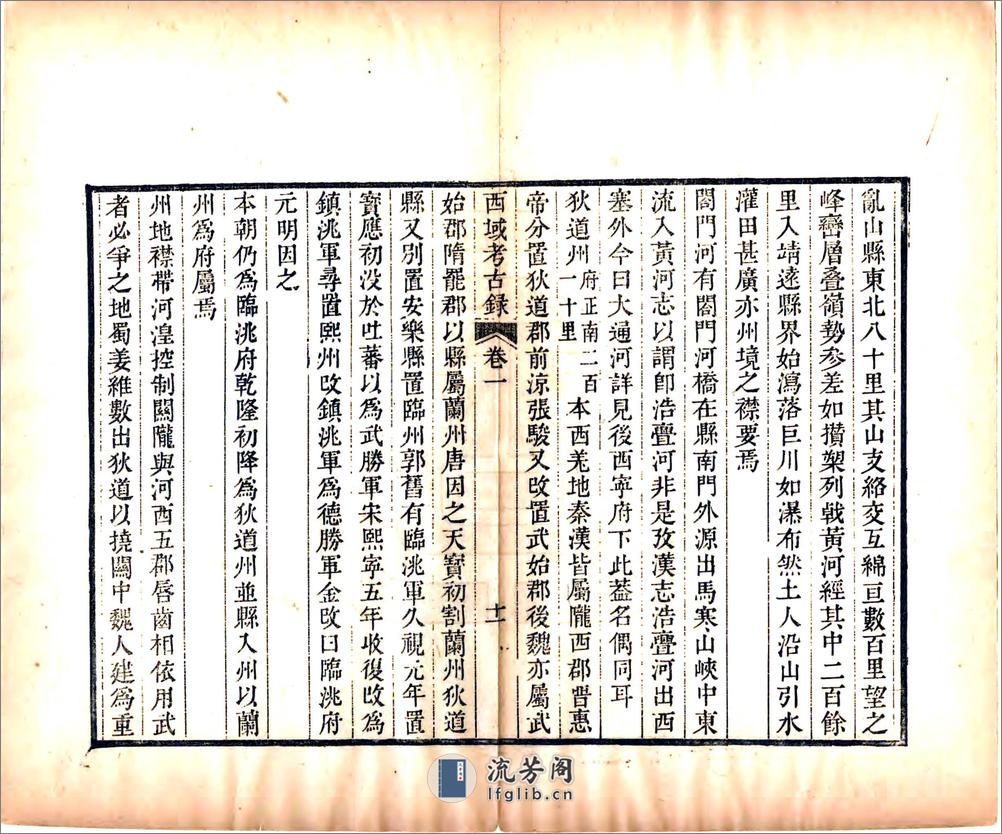 亂山縣東北八十里其山支絡交互綿亘數百里望之
峰巒層叠嶺勢參差如攢架列戟黃河經其中二百餘
里入靖遠縣界始瀉落巨川如瀑布然土人沿山引水
灌田甚廣亦州境之襟要焉
閤門河有閤門河橋在縣南門外源出馬寒山峽中東
流入黃河志以謂卽浩亹河非是攷漢志浩亹河出西
塞外今曰大通河詳見後西寧府下此葢名偶同耳
狄道州府正南二百一十里本西羌地秦漢皆屬隴西郡晋惠
帝分置狄道郡前涼張駿又改置武始郡後魏亦屬武
西域考古録 卷一 十一
始郡隋罷郡以縣屬蘭州唐因之天寶初割蘭州狄道
縣又别置安樂縣置臨州郭舊有臨洮軍久視元年置
寶應初没於吐蕃以爲武勝軍宋熙寧五年收復改爲
鎮洮軍尋置熙州改鎮洮軍爲德勝軍金改曰臨洮府
元明因之
本朝仍爲臨洮府乾隆初降爲狄道州並縣入州以蘭
州爲府屬焉
州地襟帶河湟控制關隴與河西五郡唇齒相依用武
者必爭之地蜀姜維數出狄道以撓關中魏人建爲重
流芳阁
lfglib.cn